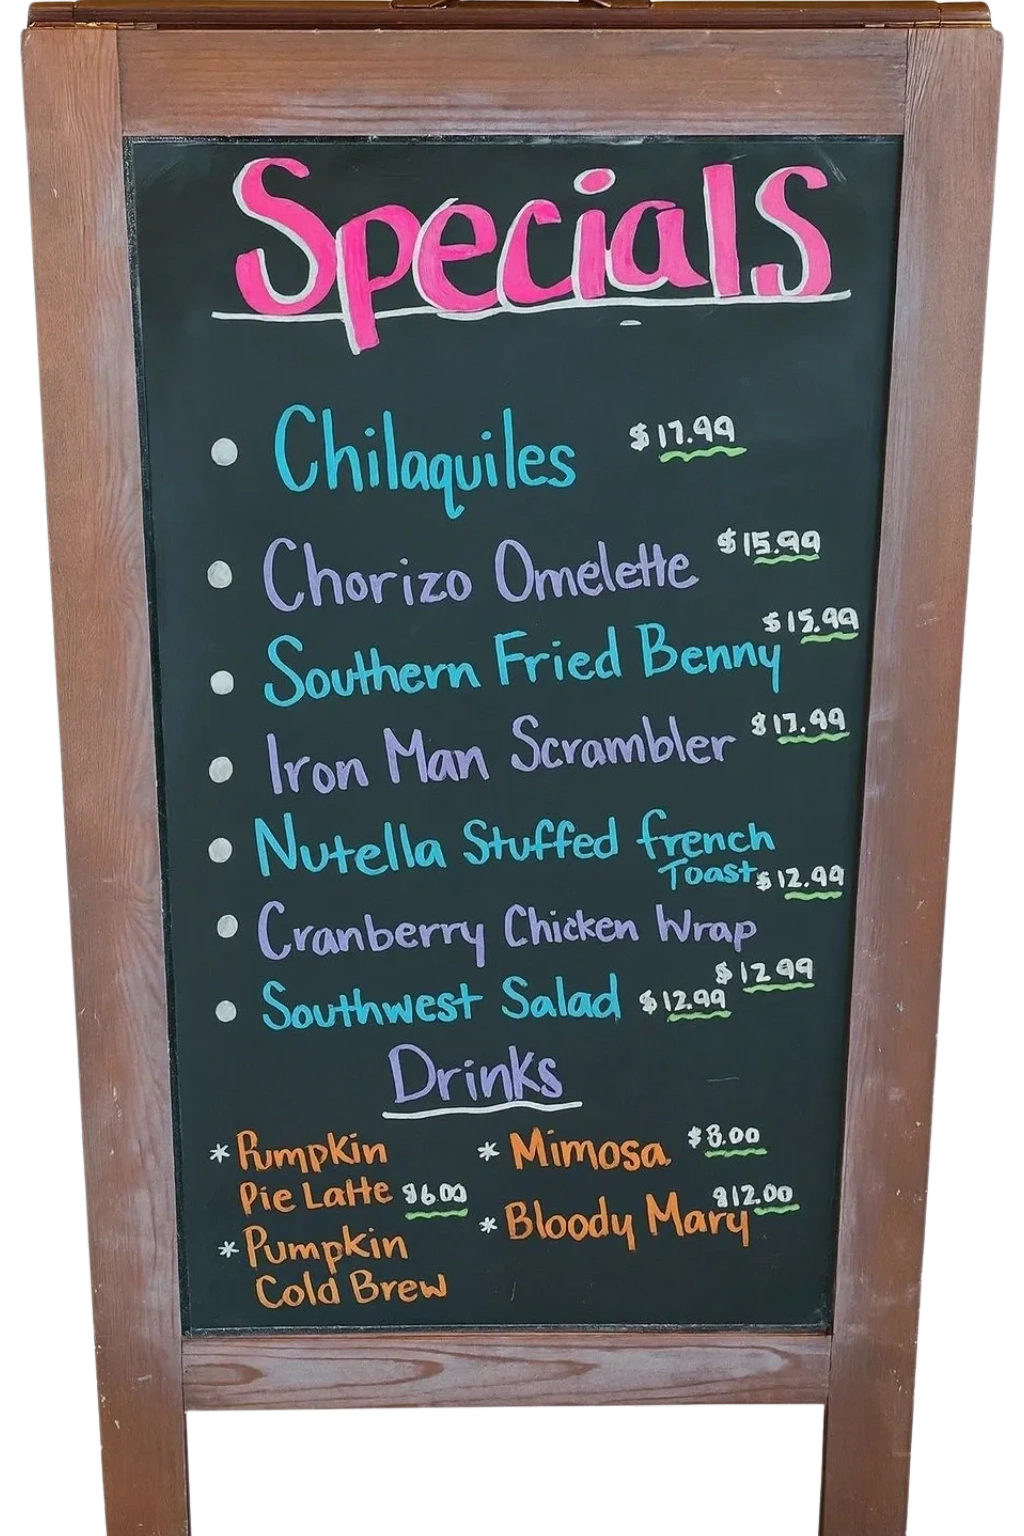 Specials
Chilaquiles $17.99
Chorizo Omelette $15.99
Southern Fried Benny $15.99
Iron Man Scrambler $17.99
Nutella Stuffed french
Toast $12.99
Cranberry Chicken Wrap
$12.99
Southwest Salad $12.99
Drinks
* Pumpkin
Pie Latte $6.00
* Pumpkin
Cold Brew
* Mimosa $8.00
* Bloody Mary $12.00